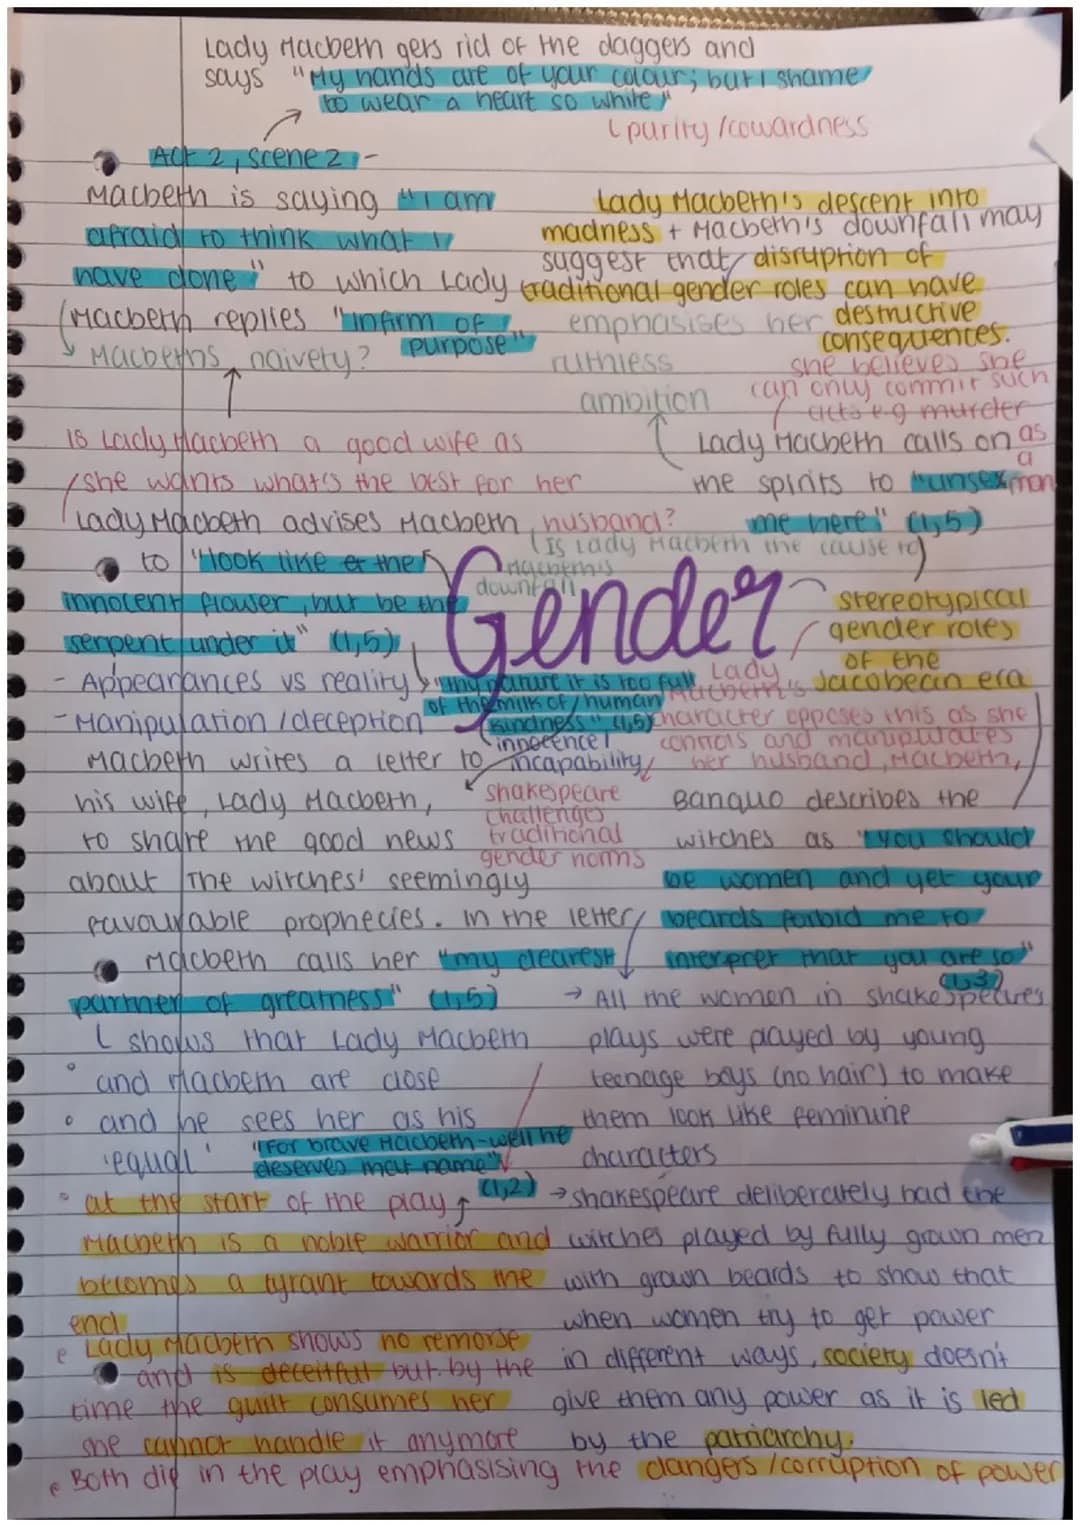 Lady Macbeth gets rid of the daggers and
says "My hands are of your colour; but I shame
to wear a heart so white"
purity/cowardness
Act 2, scene 2 -
Macbeth is saying "I am
afraid to think what I
have done" to which Lady
Macbeth replies "infirm of
purpose"
Macbeths naivety?
Lady Macbeth's descent into
madness + Macbeth's downfall may
suggest that disruption of
traditional gender roles can have
destructive
consequences.
emphasises her
ruthless
ambition
she believes she
can only commit such
acts e.g murder
as
a
man
Lady Macbeth calls on
the spirits to "unsex
me here" (1,5)
is Lady Macbeth a good wife as
she wants what's the best for her
husband?
Lady Macbeth advises Macbeth
to "look like the
innocent flower, but be the
serpent under it" (1,5)
- Appearances vs reality
- Manipulation/deception
Is Lady Macbeth the cause to
Macbeth's
downfall
Gender
stereotypical
gender roles
of the
Jacobean era
"my nature it is too full
of the milk of human
kindness" (1,5)
innocence/
incapability
Lady
Macbeth's
character opposes this as she
controls and manipulates
her husband, Macbeth,
shakespeare
challenges
traditional
gender norms
Macbeth writes a letter to
his wife, Lady Macbeth,
to share the good news
about The witches' seemingly
favourable prophecies. In the letter,
Macbeth calls her "my dearest
partner of greatness" (1,5)
shows that Lady Macbeth
and Macbeth are close
and he sees her as his
'equal'
Banquo describes the
witches as "you should
be women and yet your
beards forbid me to
interpret that you are so"
(1,3)
→ All the women in shakespeares
plays were played by young
teenage boys (no hair) to make
them look like feminine
characters
"For brave Macbeth-well he
deserves that name"
(1,2)
at the start of the play
Macbeth is a noble warrior and
becomes a tyrant towards the
end
Lady Macbeth shows no remorse
and is deceitful but by the
time the guilt consumes her
she cannot handle it anymore
→ shakespeare deliberately had the
witches played by fully grown men
with grown beards to show that
when women try to get power
in different ways, society doesn't
give them any power as it is led
by the patriarchy.
Both die in the play emphasising the dangers/corruption of power